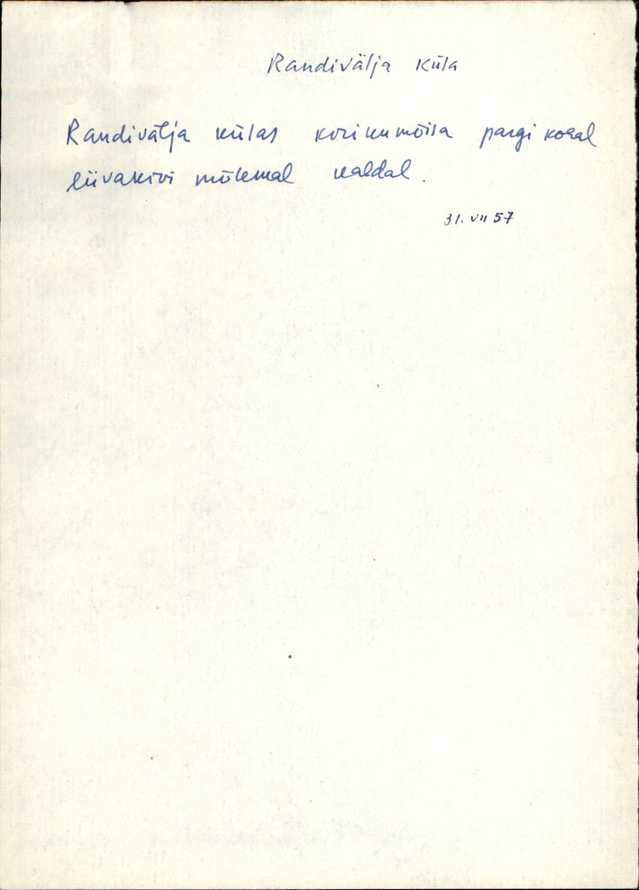 Randivälja küla
Randivälja külas kirikumõisa pargi kohal
liivakivi mõlemal kaldal.
31. VII 57